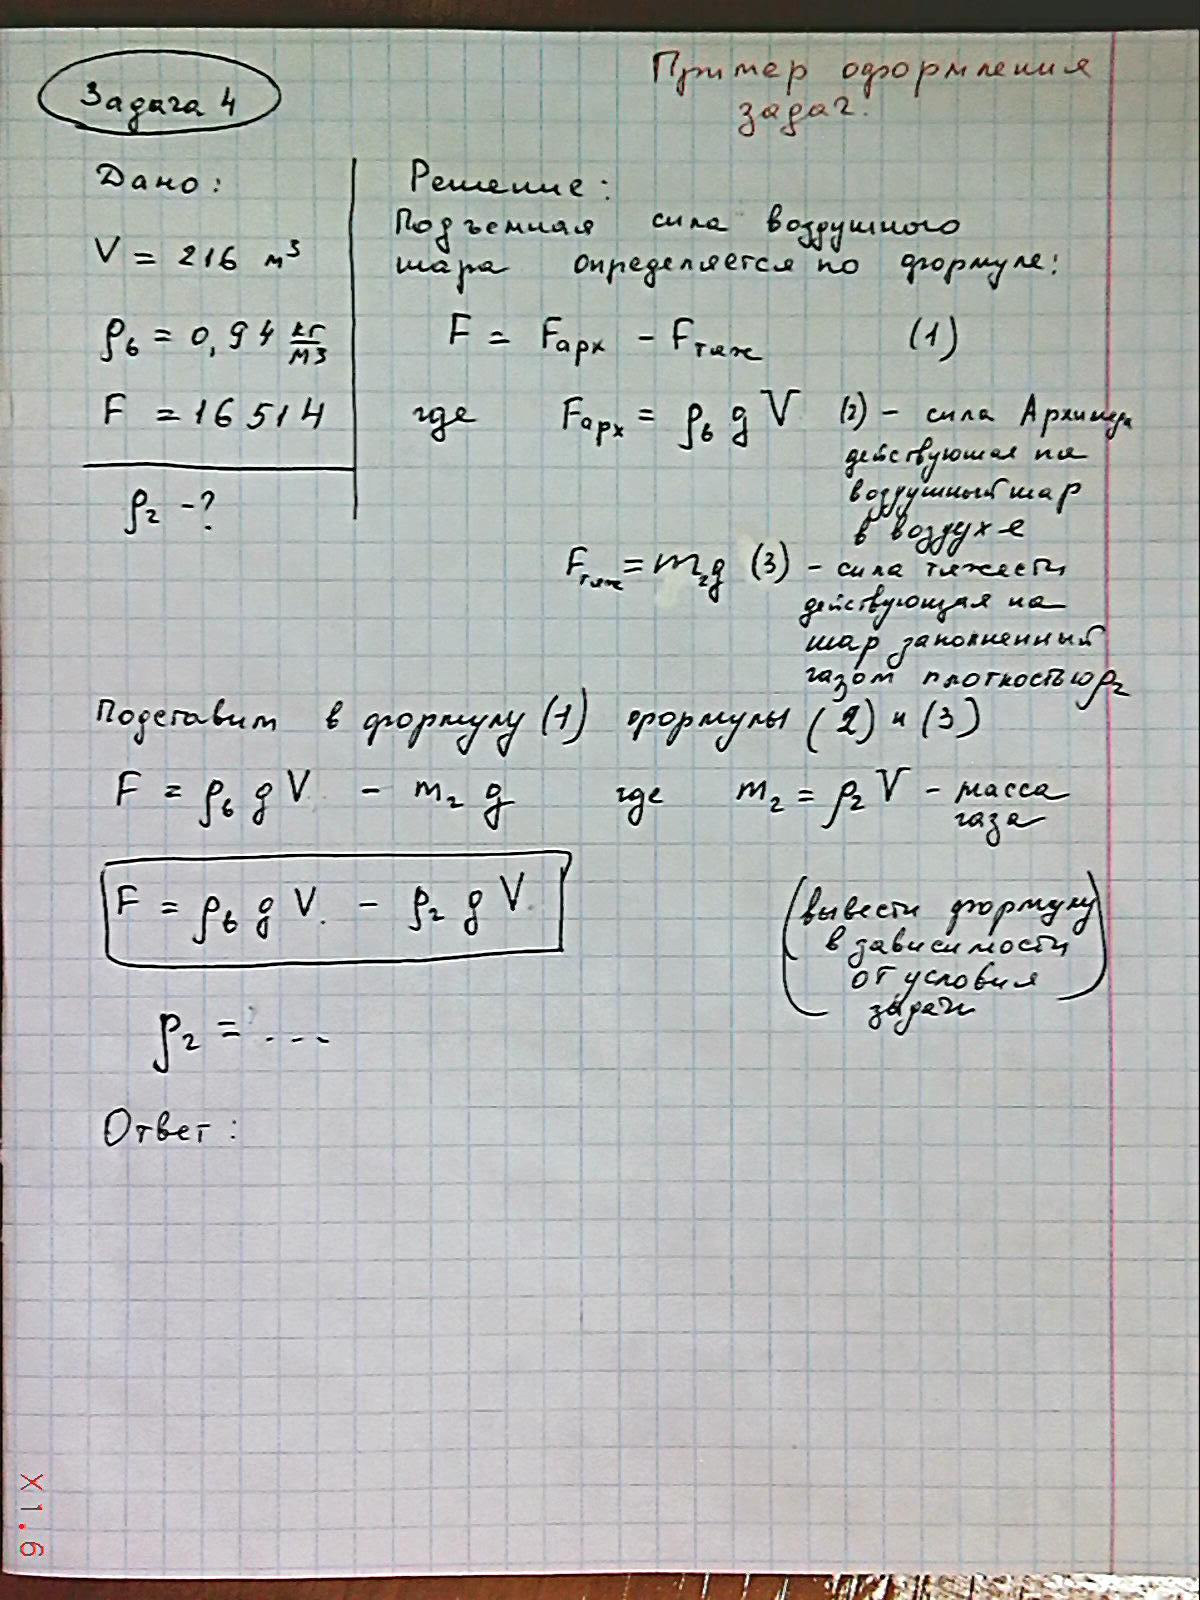 Пример оформления
задач.
Задача 4
Дано:
V = 216 м³
ρв = 0,94 кг/м3
F = 1651 Н
ρг - ?
Решение:
Подъемная сила воздушного
шара определяется по формуле:
F = Fарх - Fтяж (1)
где Fарх = ρв g V (2) - сила Архимеда
действующая на
воздушный шар
в воздухе
Fтяж = mг g (3) - сила тяжести
действующая на
шар заполненный
газом плотностью ρг
Подставим в формулу (1) формулы (2) и (3)
F = ρв g V - mг g где mг = ρг V - масса
газа
F = ρв g V. - ρг g V.
(вывести формулу
в зависимости
от условия
задачи)
ρг = ...
Ответ:
X1.6